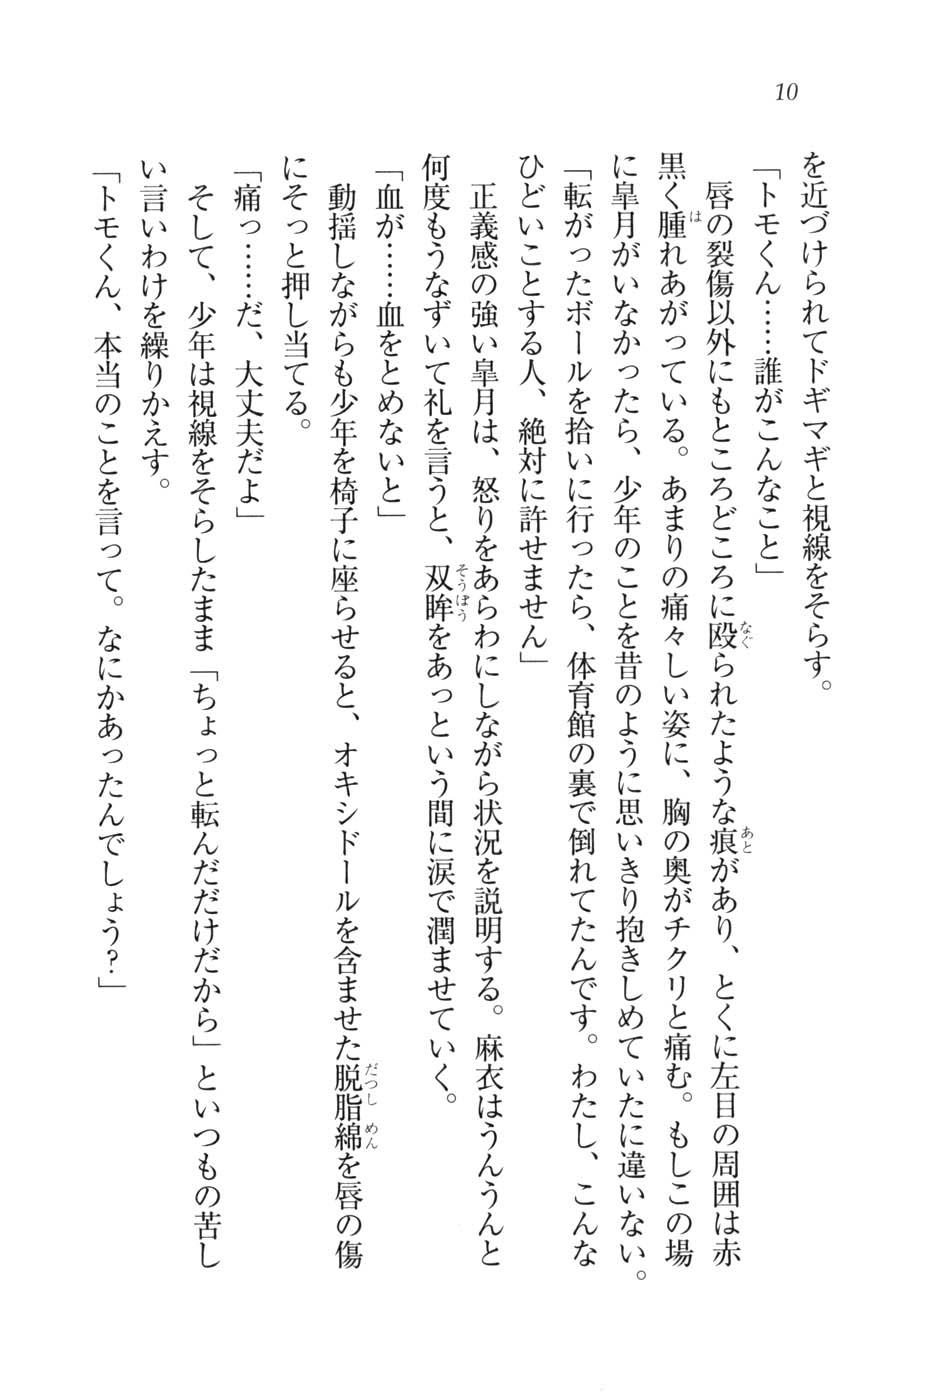 10
を近づけられてドギマギと視線をそらす。
「トモくん……誰がこんなこと」
唇の裂傷以外にもところどころに殴られたような痕があり、とくに左目の周囲は赤
黒く腫れあがっている。あまりの痛々しい姿に、胸の奥がチクリと痛む。もしこの場
に皐月がいなかったら、少年のことを昔のように思いきり抱きしめていたに違いない。
「転がったボールを拾いに行ったら、体育館の裏で倒れてたんです。わたし、こんな
ひどいことする人、絶対に許せません」
正義感の強い皐月は、怒りをあらわにしながら状況を説明する。麻衣はうんうんと
何度もうなずいて礼を言うと、双眸をあっという間に涙で潤ませていく。
「血が……血をとめないと」
動揺しながらも少年を椅子に座らせると、オキシドールを含ませた脱脂綿を唇の傷
にそっと押し当てる。
「痛っ……だ、大丈夫だよ」
そして、少年は視線をそらしたまま「ちょっと転んだだけだから」といつもの苦し
い言いわけを繰りかえす。
「トモくん、本当のことを言って。なにかあったんでしょう？」